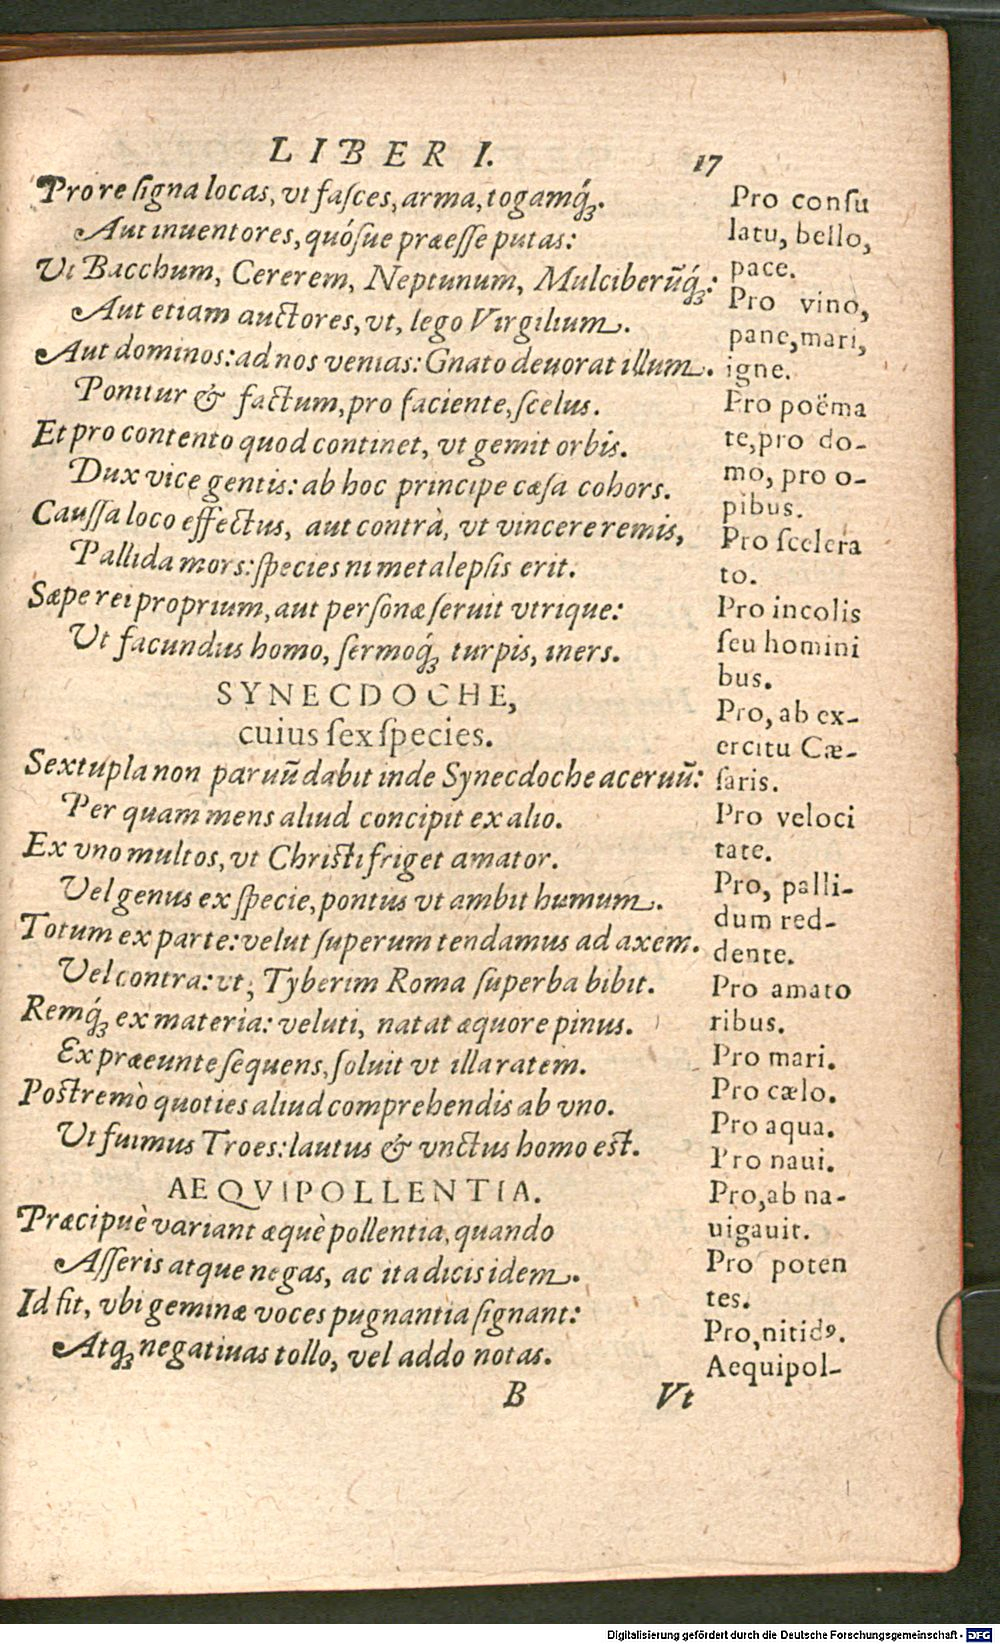 LIBER I. 17
Pro re ſigna locas, vt faſces, arma, togamq́ꝫ.
Aut inuentores, quóſue præeſſe putas:
Vt Bacchum, Cererem, Neptunum, Mulciberũq́ꝫ:
Aut etiam auctores, vt, lego Virgilium.
Aut dominos: ad nos venias: Gnato deuorat illum.
Ponitur & factum, pro faciente, ſcelus.
Et pro contento quod continet, vt gemit orbis.
Dux vice gentis: ab hoc principe cæſa cohors.
Cauſſa loco effectus, aut contrà, vt vincere remis,
Pallida mors: ſpecies ni metalepſis erit.
Sæpe rei proprium, aut perſonæ ſeruit vtrique:
Vt facundus homo, ſermoq́ꝫ turpis, iners.
SYNECDOCHE,
cuius ſex ſpecies.
Sextupla non paruũ dabit inde Synecdoche aceruũ:
Per quam mens aliud concipit ex alio.
Ex vno multos, vt Chriſti friget amator.
Vel genus ex ſpecie, pontus vt ambit humum.
Totum ex parte: velut ſuperum tendamus ad axem.
Vel contra: vt, Tyberim Roma ſuperba bibit.
Remq́ꝫ ex materia: veluti, natat æquore pinus.
Ex præeunte ſequens, ſoluit vt illa ratem.
Poſtremò quoties aliud comprehendis ab vno.
Vt fuimus Troes: lautus & vnctus homo eſt.
AEQVIPOLLENTIA.
Præcipuè variant æquè pollentia, quando
Aſſeris atque negas, ac ita dicis idem.
Id fit, vbi geminæ voces pugnantia ſignant:
Atqꝫ negatiuas tollo, vel addo notas.
B Vt
Pro conſu
latu, bello,
pace.
Pro vino,
pane, mari,
igne.
Pro poëma
te, pro do-
mo, pro o-
pibus.
Pro ſcelera
to.
Pro incolis
ſeu homini
bus.
Pro, ab ex-
ercitu Cæ-
ſaris.
Pro veloci
tate.
Pro, palli-
dum red-
dente.
Pro amato
ribus.
Pro mari.
Pro cælo.
Pro aqua.
Pro naui.
Pro, ab na-
uigauit.
Pro poten
tes.
Pro, nitidꝰ.
Aequipol-
Digitalisierung gefördert durch die Deutsche Forschungsgemeinschaft - DFG